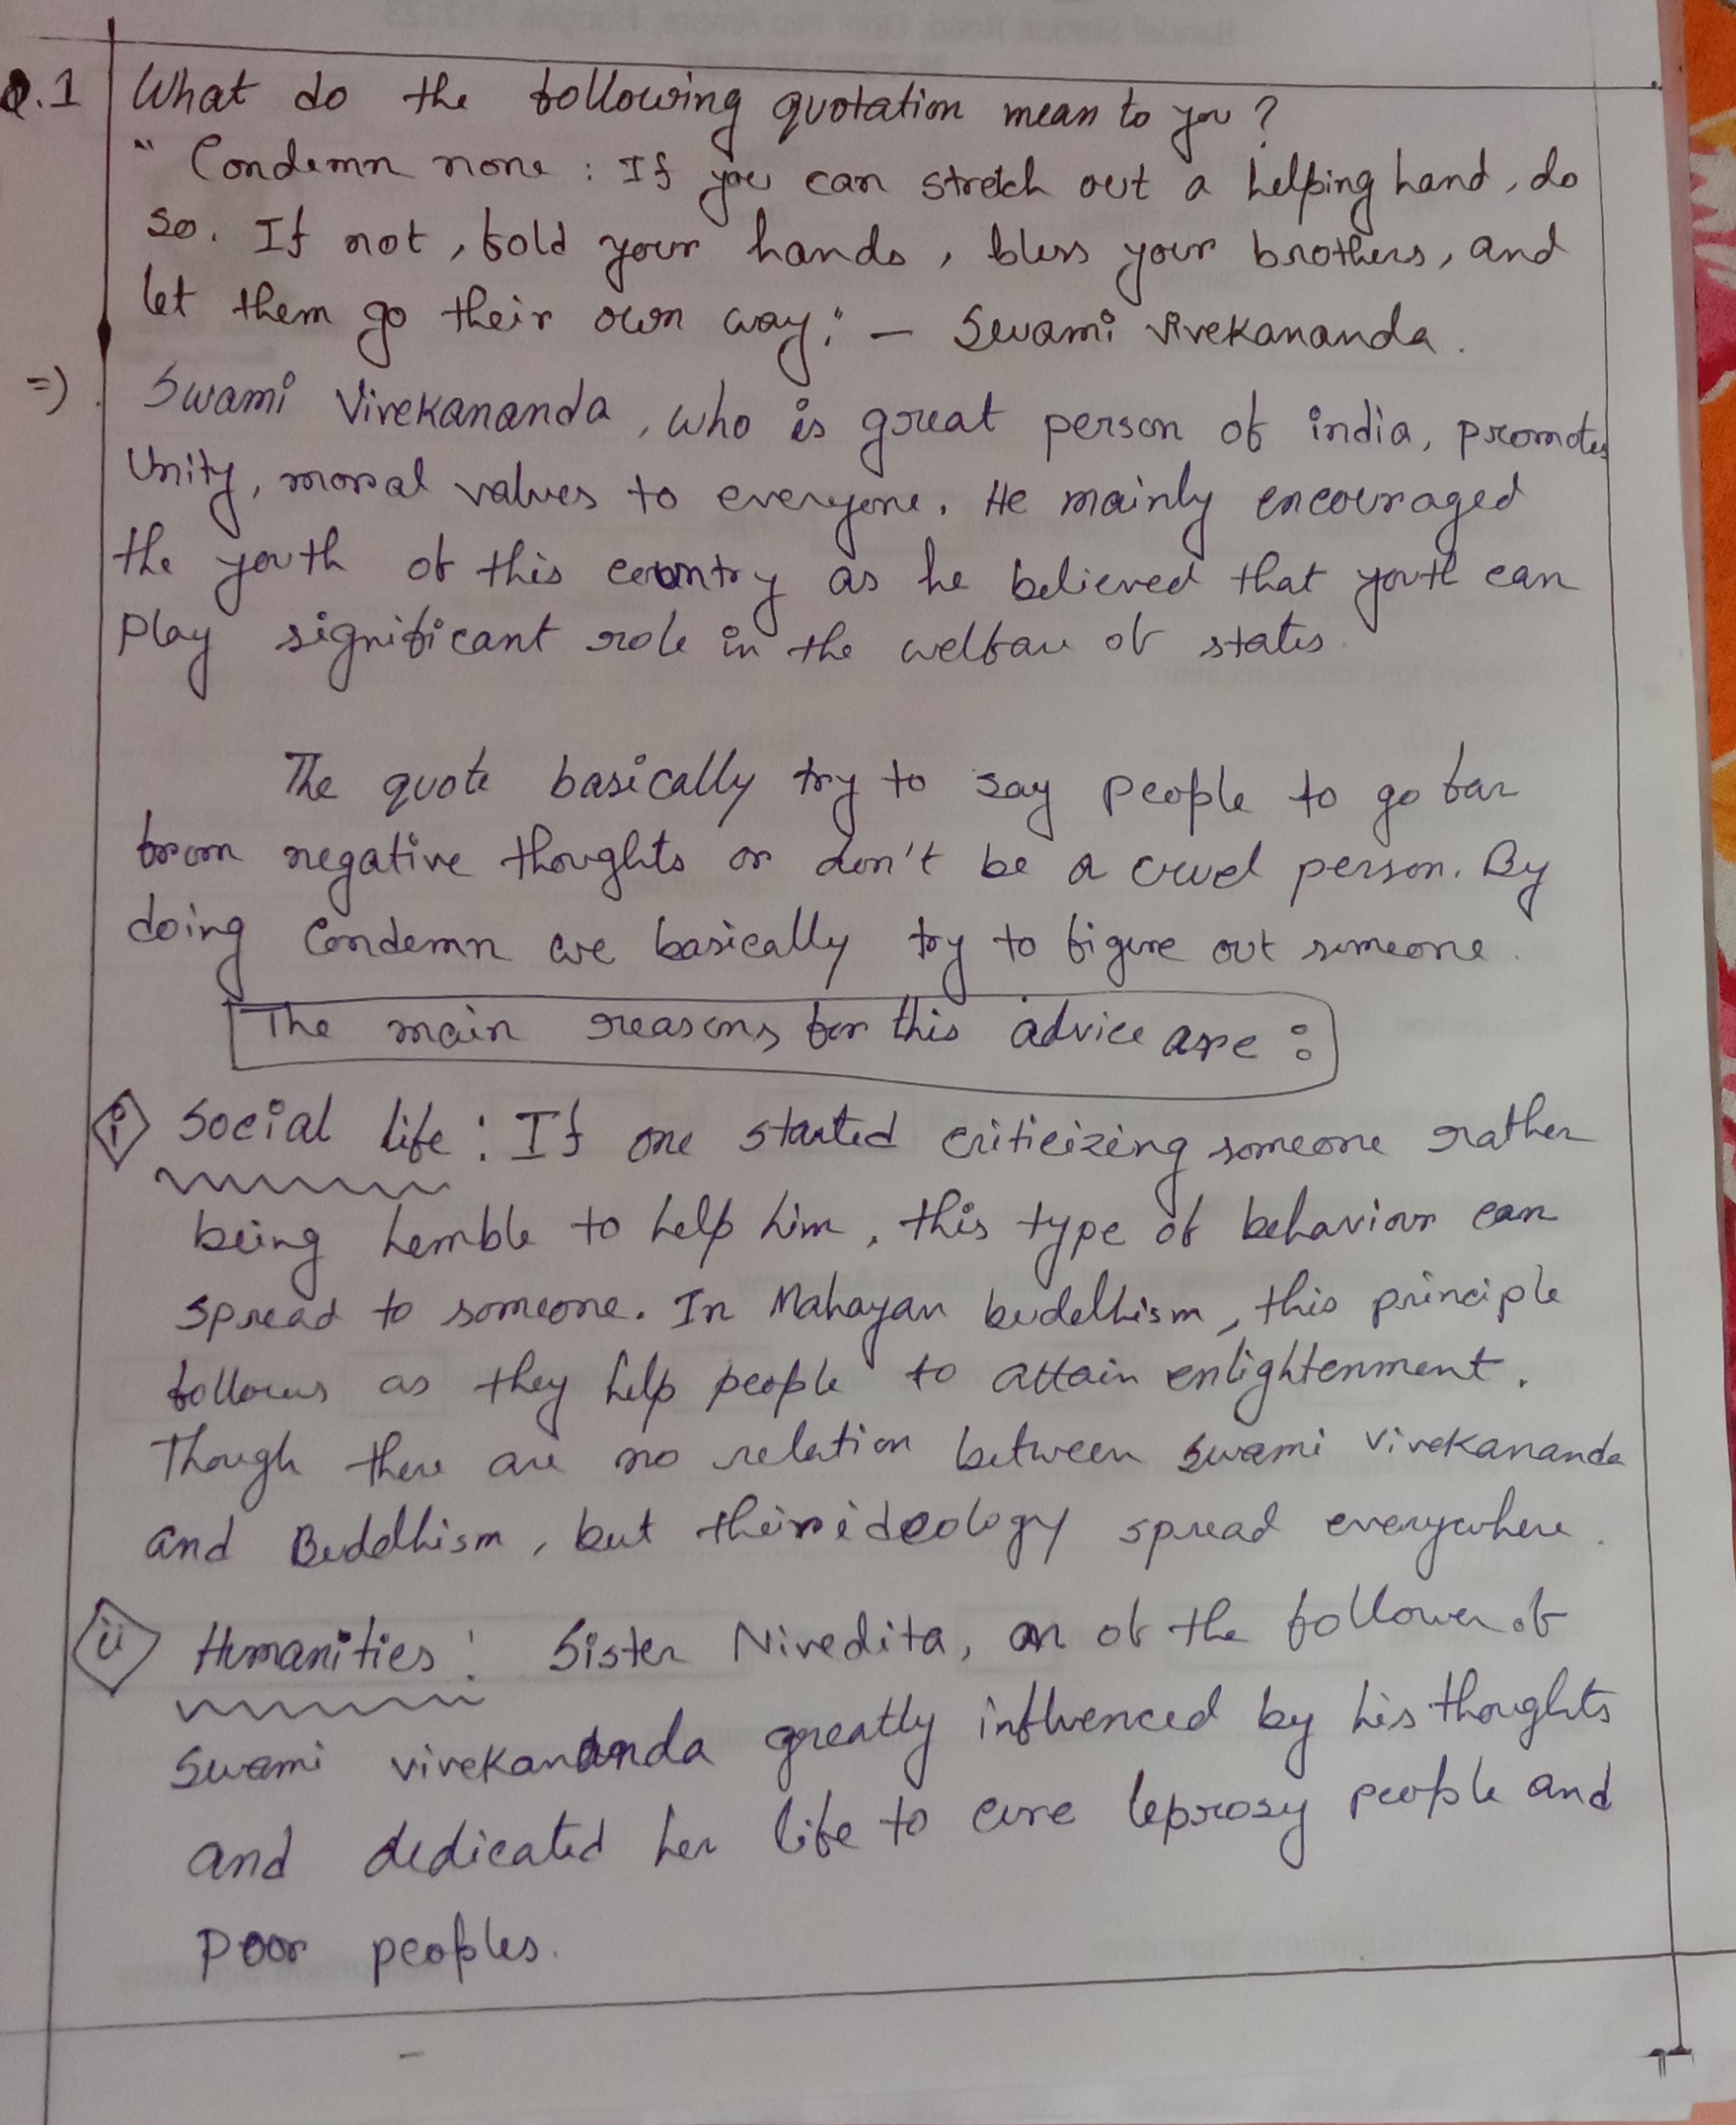 Q.1 What do the following quotation mean to you?
" Condemn none : If you can stretch out a helping hand, do
so. If not, fold your hands, bless your brothers, and
let them go their own way." - Swami Vivekananda.
=) Swami Vivekananda, who is great person of india, promotes
Unity, moral values to everyone. He mainly encouraged
the youth of this country as he believed that youth can
play significant role in the welfare of states.
The quote basically try to say people to go far
from negative thoughts or don't be a cruel person. By
doing Condemn we basically try to figure out someone.
The main reasons for this advice are :
i Social life : If one started criticizing someone rather
being hemble to help him, this type of behaviour can
spread to someone. In Mahayan buddhism, this principle
follows as they help people to attain enlightenment.
Though there are no relation between Swami Vivekananda
and Buddhism, but their ideology spread everywhere.
ii Humanities : Sister Nivedita, on of the follower of
Swami vivekananda greatly influenced by his thoughts
and dedicated her life to cure leprosy people and
poor peoples.